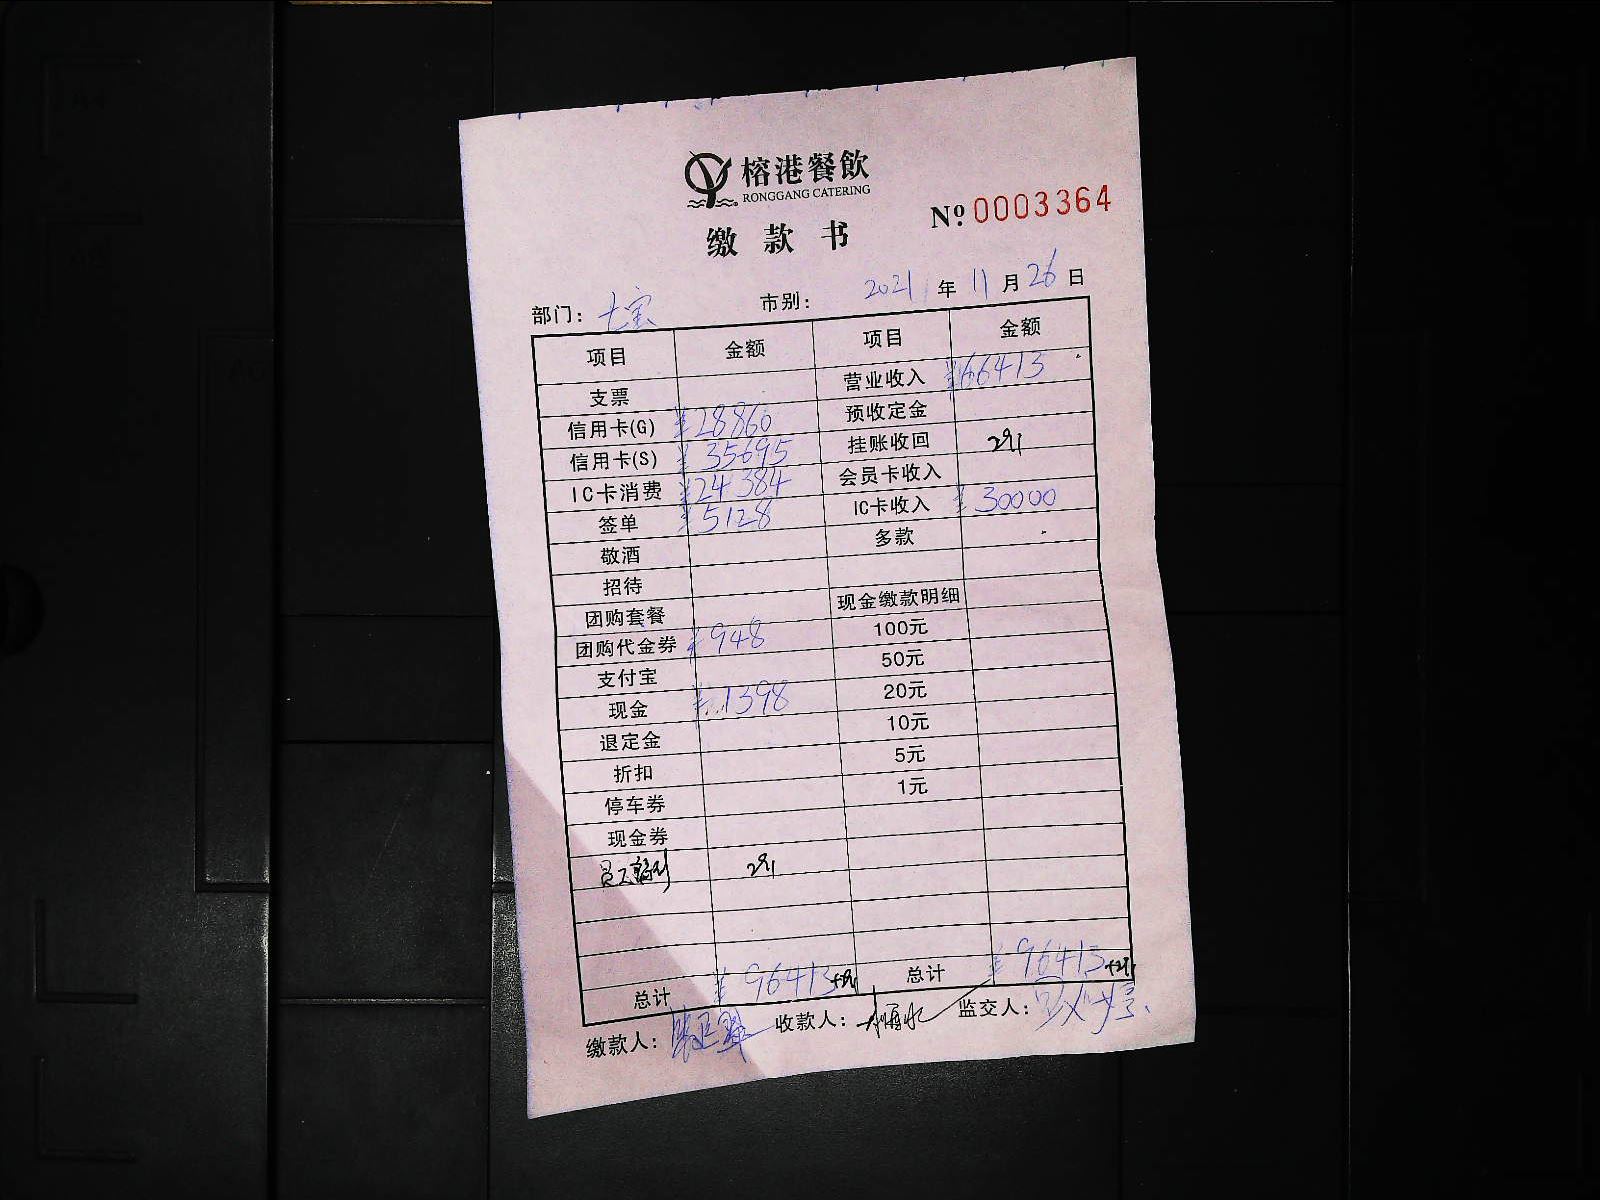 榕港餐飲
RONGGANG CATERING
缴款书
Nº 0003364
部门: 七宝 市别: 2021年11月26日
项目 金额 项目 金额
支票 营业收入 ¥66413
信用卡(G) ¥28860 预收定金
信用卡(S) ¥35695 挂账收回 291
IC卡消费 ¥24384 会员卡收入
签单 ¥5128 IC卡收入 ¥30000
敬酒 多款
招待
团购套餐 现金缴款明细
团购代金券 ¥948 100元
支付宝 50元
现金 ¥1398 20元
退定金 10元
折扣 5元
停车券 1元
现金券
员工 291
总计 ¥96413+291 总计 ¥96413+291
缴款人: 收款人: 监交人: